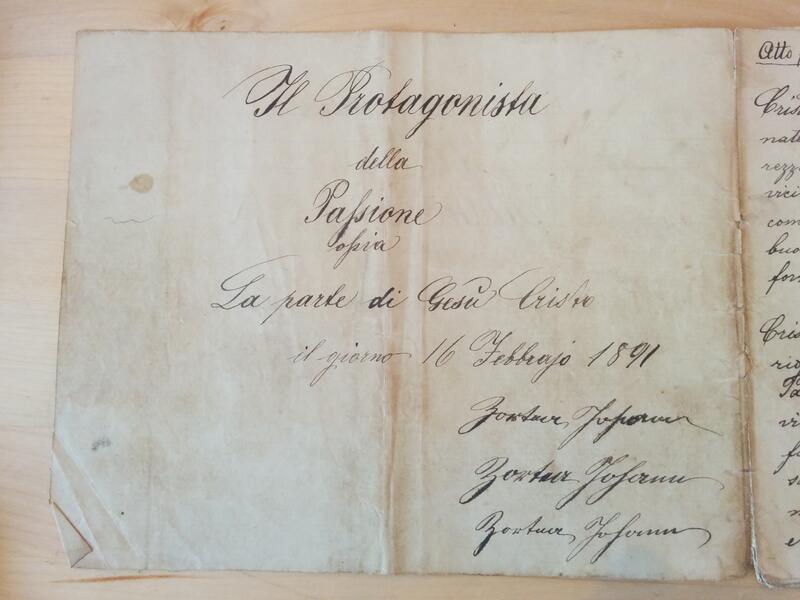 Il Protagonista
della
Passione
ossia
La parte di Gesù Cristo
il giorno 16 Febbrajo 1891
Zortea Johann
Zortea Johann
Zortea Johann
Atto
Cris
nat
rezz
vici
com
buo
for
Cris